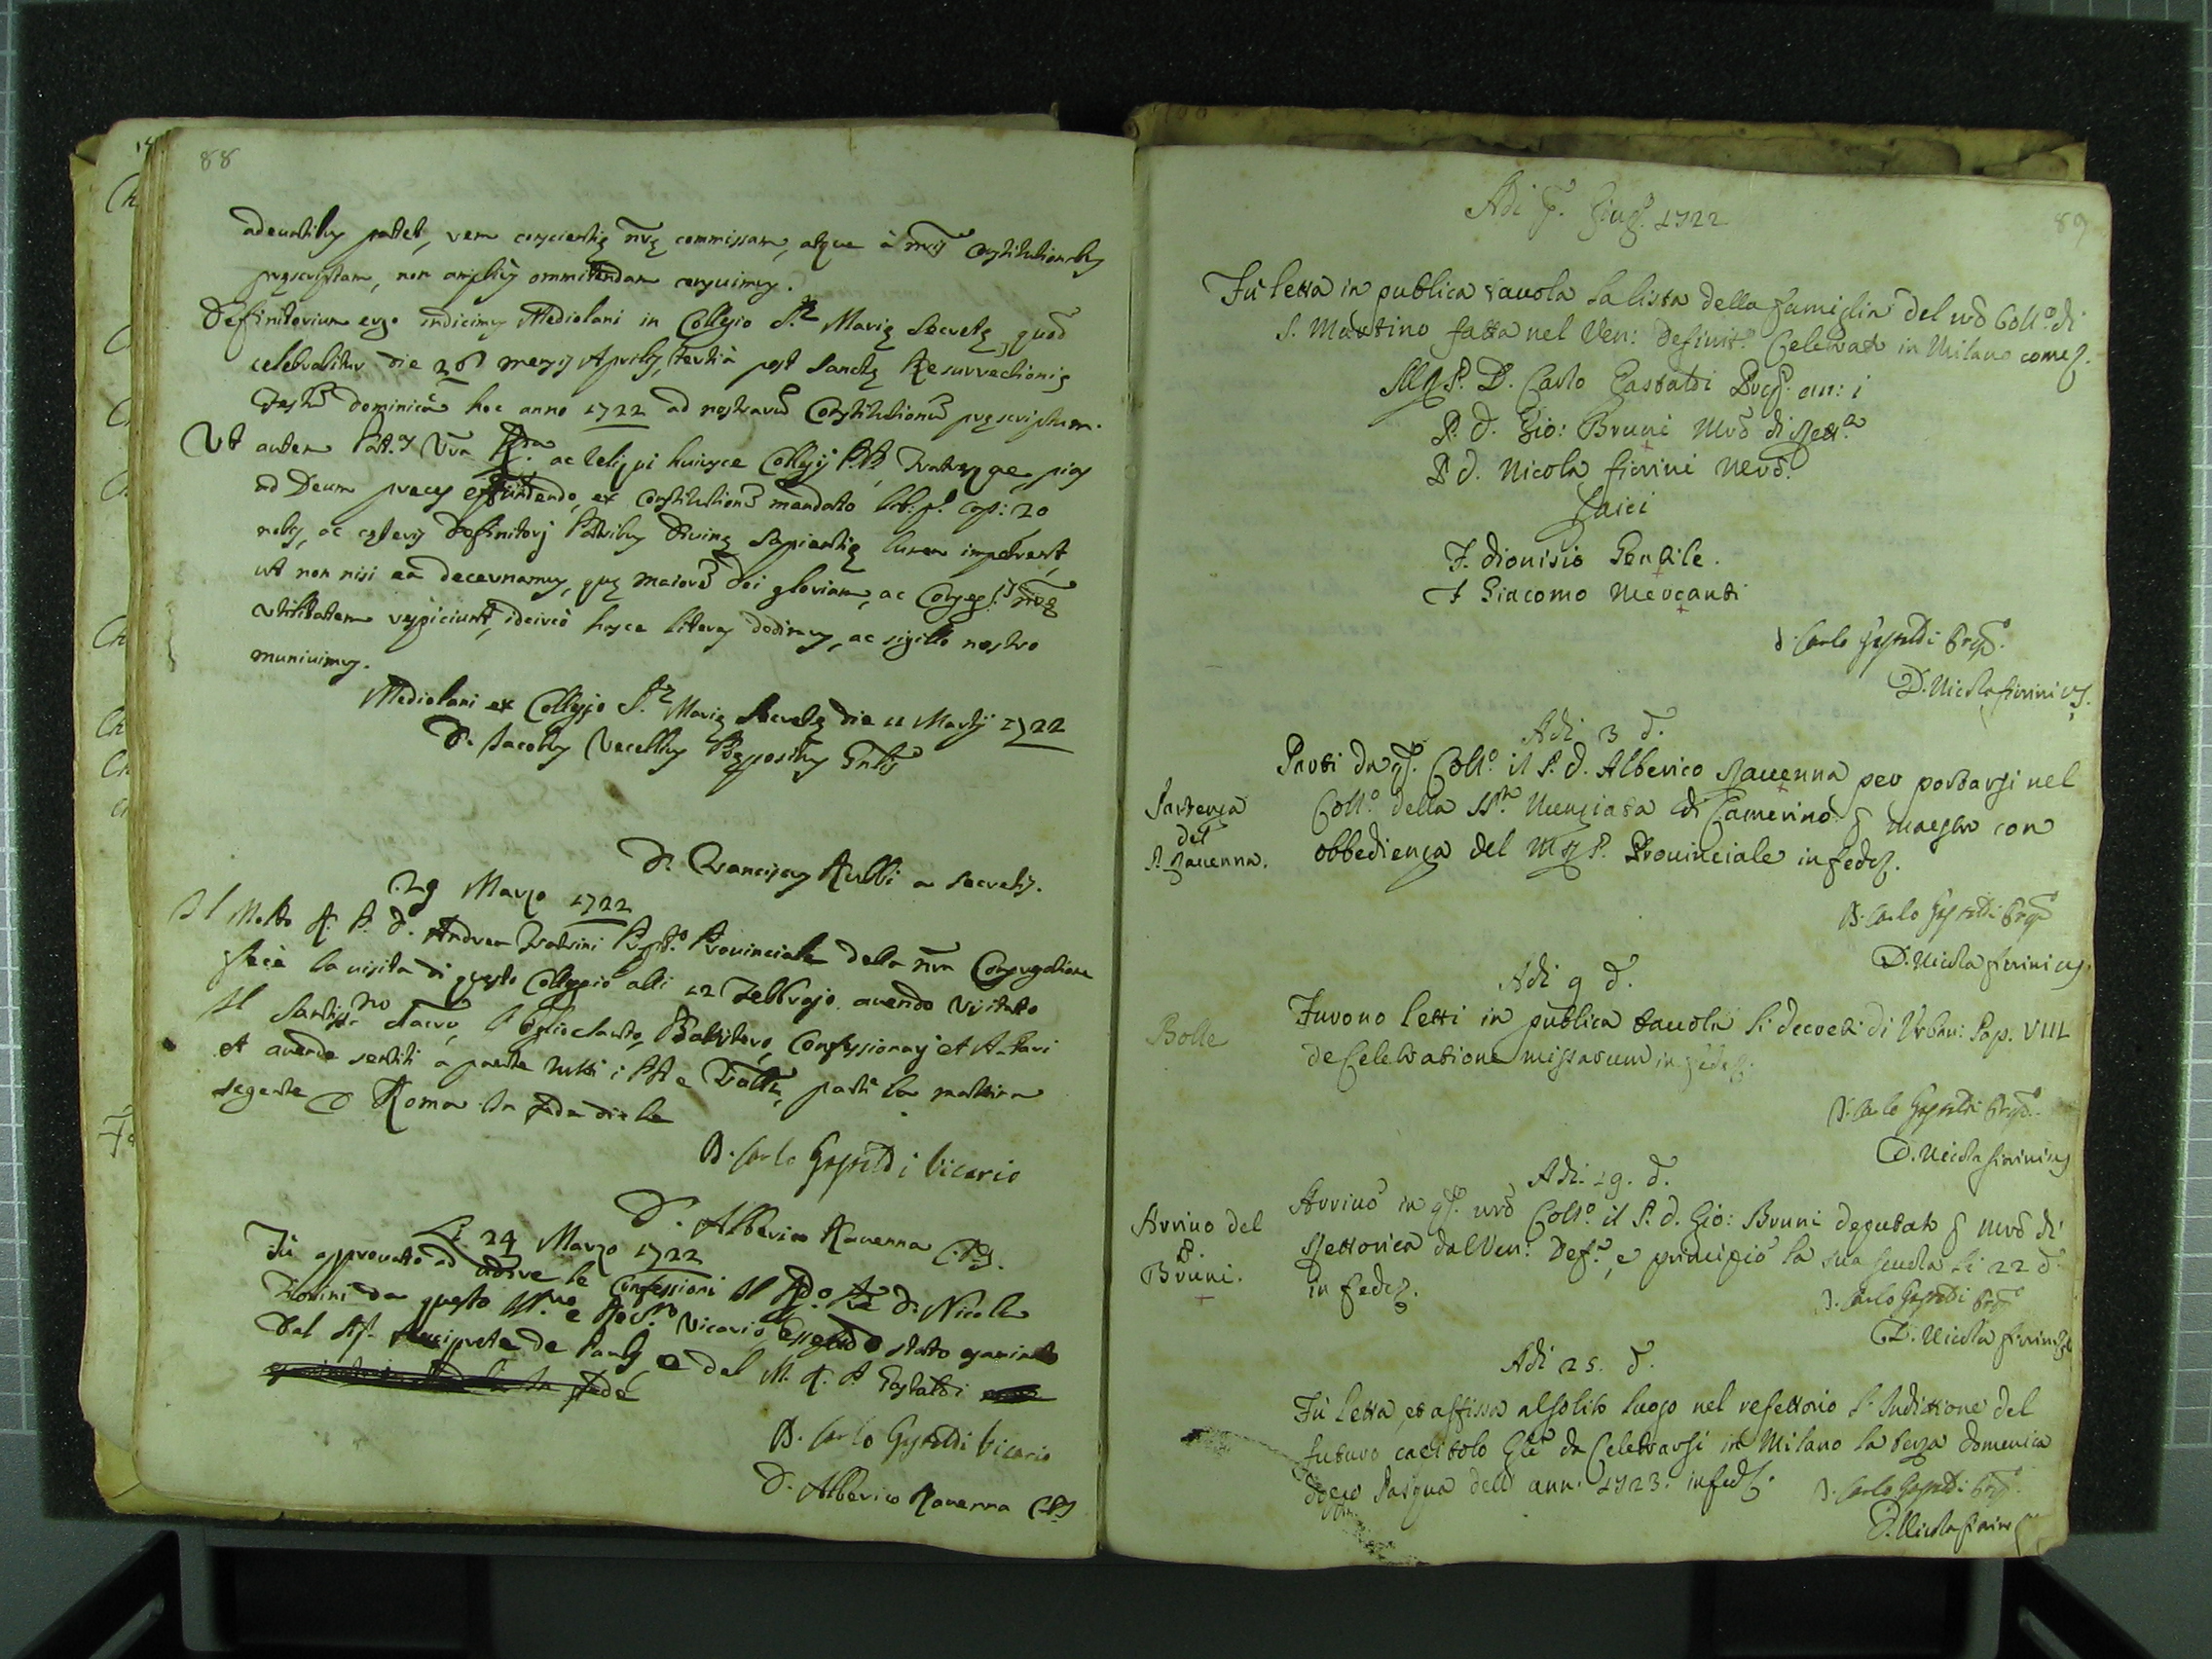 88
patet, rem conscientię nrę commissam, atque à nris Constitutionibus
pręscriptam, non amplius ommittendam censuimus.
Definitorium ergo indicimus Mediolani in Collegio S.tę Marię Secretę, quod
celebrabitur die 26 mensis Aprilis, tertià post Sanctę Resurrectionis
Festū dominicà hoc anno 1722 ad nostrarū Constitutionū pręscriptum.
Ut autem Vra ac reliqui huiusce Collegij PP. Fratresque, pias
ad Deum preces effundendo, ex Constitutionū mandato lib: p.o cap: 20
nobis, ac cęteris Definitorij Patribus Divinę Sapientię lumen impetrent,
ut non nisi ea decernamus, quę maiorē Dei gloriam, ac Congreg.is nrę
utilitatem respiciunt, idcircò hasce literas dedimus, ac sigillo nostro
muniuimus.
Mediolani ex Collegio S.tę Marię Secretę die 11 Martij 1722
D. Iacobus Vecellius Prępositus Gnlis
D. Franciscus Rubbi a secretis.
29 Marzo 1722
Il Molto R. P. D. Andrea Prouinciale della nra Congregatione
fece la uisita di questo Collegio alli 12 Febbrajo auendo uisitato
il Santiss.mo Sacro, l'Oglio Santo, Battistero, Confessionarj et Altari
et auendo sentiti a parte tutti i PP. e Fratti, parti la mattina
seguente Roma In fede
D. Carlo Gastaldi Vicario
D. Alberico Rauenna
Li 24 Marzo 1722
Fù approuato ad udire le Confessioni il P. D. Nicola
Fiorini da questo Ill.mo e Vicario, essendo stato esaminato
Dal de Paulis e dal M. R. P. Gastaldi
D. Carlo Gastaldi Vicario
D. Alberico Rauenna
Adi p.o Giug.o 1722
89
Fù letta in publica tauola la lista della famiglia del nrō Coll.o di
S. Martino fatta nel Ven: Definit.o Celebrato in Milano come s.
M R P. D. Carlo Gastaldi an: i
P. D. Gio: Bruni Mrō di Rett.ca
P D. Nicola fiorini
Laici
F. Dionisio Gentile.
F Giacomo Mercanti
D. Carlo Gastaldi
D. Nicola fiorini
Adi 3 d.
Partenza
del
P. Rauenna.
Parti da qs.o Coll.o il P. D. Alberico Rauenna per portarsi nel
Coll.o della SS.ma Nunziata di Camerino p maestro con
obbedienza del M R P. Prouinciale in fede
D. Carlo Gastaldi
D. Nicola fiorini
Adi 9 d.
Bolle
Furono letti in publica tauola li decreti di Urban: Pap. VIII
de Celebratione missarum in fede
D. Carlo Gastaldi
D. Nicola fiorini
Adi. 19. d.
Arriuo del
P.
Bruni.
Arriuò in qs.o nrō Coll.o il P. D. Gio: Bruni deputato p mrō di
Rettorica dal Ven: Def.o, e principiò la sua scuola li 22 d.
in fede
D. Carlo Gastaldi
D. Nicola fiorini
Adi 25. d.
Fù letta, et affissa al solito luogo nel refettorio l'Indittione del
futuro capitolo Gle da Celebrarsi in Milano la terza domenica
dopo Pasqua dell' ann: 1723. in fede
D. Carlo Gastaldi
D. Nicola fiorini